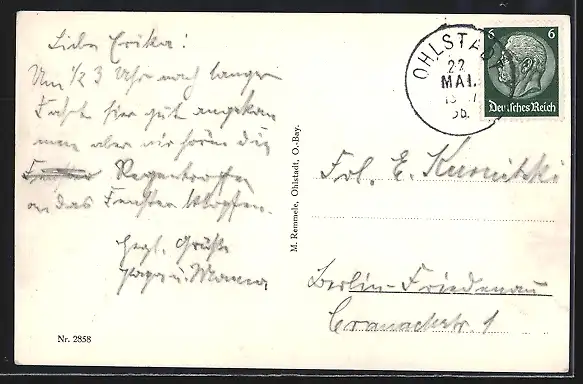 Liebe Erika!
Um 1/2 3 Uhr nach langer
Fahrt hier gut angekom
men aber wir hören die
Regentropfen
an das Fenster klopfen.
Herzl. Grüße
Papa u. Mama
Nr. 2858
M. Remmele, Ohlstadt, O.-Bay.
OHLSTADT
22
MAI.
36.
6 6
Deutsches Reich
Frl. E. Kursnitzki
Berlin-Friedenau
Cranachstr. 1